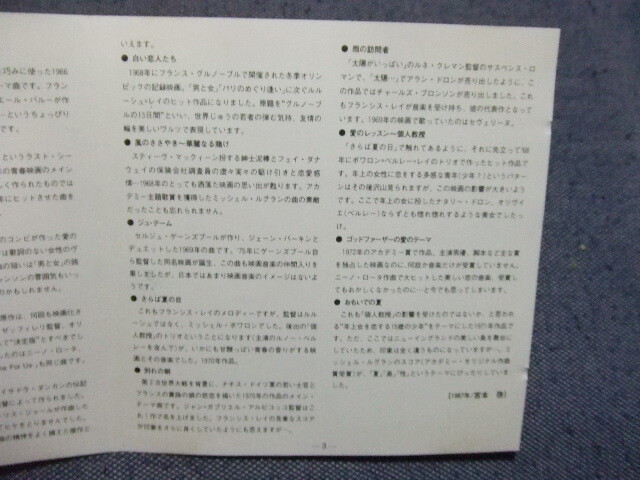 巧みに使った1966
ーマ曲です。フラン
エール・バルーが作
ーというちょっぴり
というラスト・シー
の青春映画のメイン
く作られたものでは
にヒットさせた曲を
のコンビが作った愛の
は歌詞のない女性のヴ
の狙いは「男と女」の踊
ャンソンの雰囲気もいっ
のかもしれません。
いえます。
● 白い恋人たち
1968年にフランス・グルノーブルで開催された冬季オリン
ピックの記録映画。「男と女」「パリのめぐり逢い」に次ぐルル
ーシュ=レイのヒット作品になりました。原題を"グルノーブ
ルの13日間"といい、世界じゅうの若者の弾む気持、友情の
輪を美しいワルツで表現しています。
● 風のささやき〜華麗なる賭け
スティーヴ・マックィーン扮する紳士泥棒とフェイ・ダナ
ウェイの保険会社調査員の虚々実々の駆け引きと恋愛感
情…1968年のとっても洒落た映画の思い出が甦ります。アカ
デミー主題歌賞を獲得したミッシェル・ルグランの曲の素敵
だったことも忘れられません。
● ジュ・テーム
セルジュ・ゲーンズブールが作り、ジェーン・バーキンと
デュエットした1969年の曲です。'75年にゲーンズブール自
ら監督した同名映画が誕生、この曲も映画音楽の仲間入りを
果しましたが、日本ではあまり映画音楽のイメージはないよ
うです。
● さらば夏の日
これもフランシス・レイのメロディーですが、監督はルル
ーシュではなく、ミッシェル・ボワロンでした。後出の「個
人教授」のトリオということになります(主演のルノー・ベル
レーを含んで)が、いかにも甘酸っぱい青春の香りがする映
画とその音楽でした。1970年作品。
● 別れの朝
第2次世界大戦を背景に、ナチス・ドイツ軍の若い士官と
フランスの貴族の娘の悲恋を描いた1970年の作品のメイン・
テーマです。ジャン・ガブリエル・アルビコッコ監督はこ
れ1作で名を上げました。フランシス・レイの見事なスコア
が印象をさらに良くしていたようにも思えますが…。
● 雨の訪問者
「太陽がいっぱい」のルネ・クレマン監督のサスペンス・ロ
マンで、「太陽…」でアラン・ドロンが売り出したように、こ
の作品ではチャールズ・ブロンソンが売り出しました。これ
もフランシス・レイが音楽を受け持ち、彼の代表作となって
います。1969年の映画で歌っていたのはセヴェリーヌ。
● 愛のレッスン〜個人教授
「さらば夏の日」で触れてあるように、それに見立って'68
年にボワロン=ベルレー=レイのトリオで作ったヒット作品で
す。年上の女性に恋をする多感な青年(少年!)というパター
ンはその後沢山見られますが、この映画の影響が大きいよう
です。ここで年上の女に扮したナタリー・ドロン、オリヴィ
エ(ベルレー)ならずとも惚れ惚れするような美女でしたっ
け。
● ゴッドファーザーの愛のテーマ
1972年のアカデミー賞で作品、主演男優、脚本など主な賞
を独占した映画なのに、何故か音楽だけが受賞していません。
ニーノ=ロータ作曲で大ヒットした美しい恋の音楽、受賞し
てもおかしくなかったのに…と今でも思ってしまいます。
● おもいでの夏
これも「個人教授」の影響を受けたのではないか、と思われ
る"年上女を恋する15歳の少年"をテーマにした'70年作品で
す。ただ、ここではニューイングランドの美しい島を舞台に
していたため、印象は全く違うものになっていますが…。ミ
ッシェル・ルグランのスコア(アカデミー・オリジナル作曲
賞受賞)が、「夏」「島」「性」というテーマにぴったりでしていま
した。
— 3 —